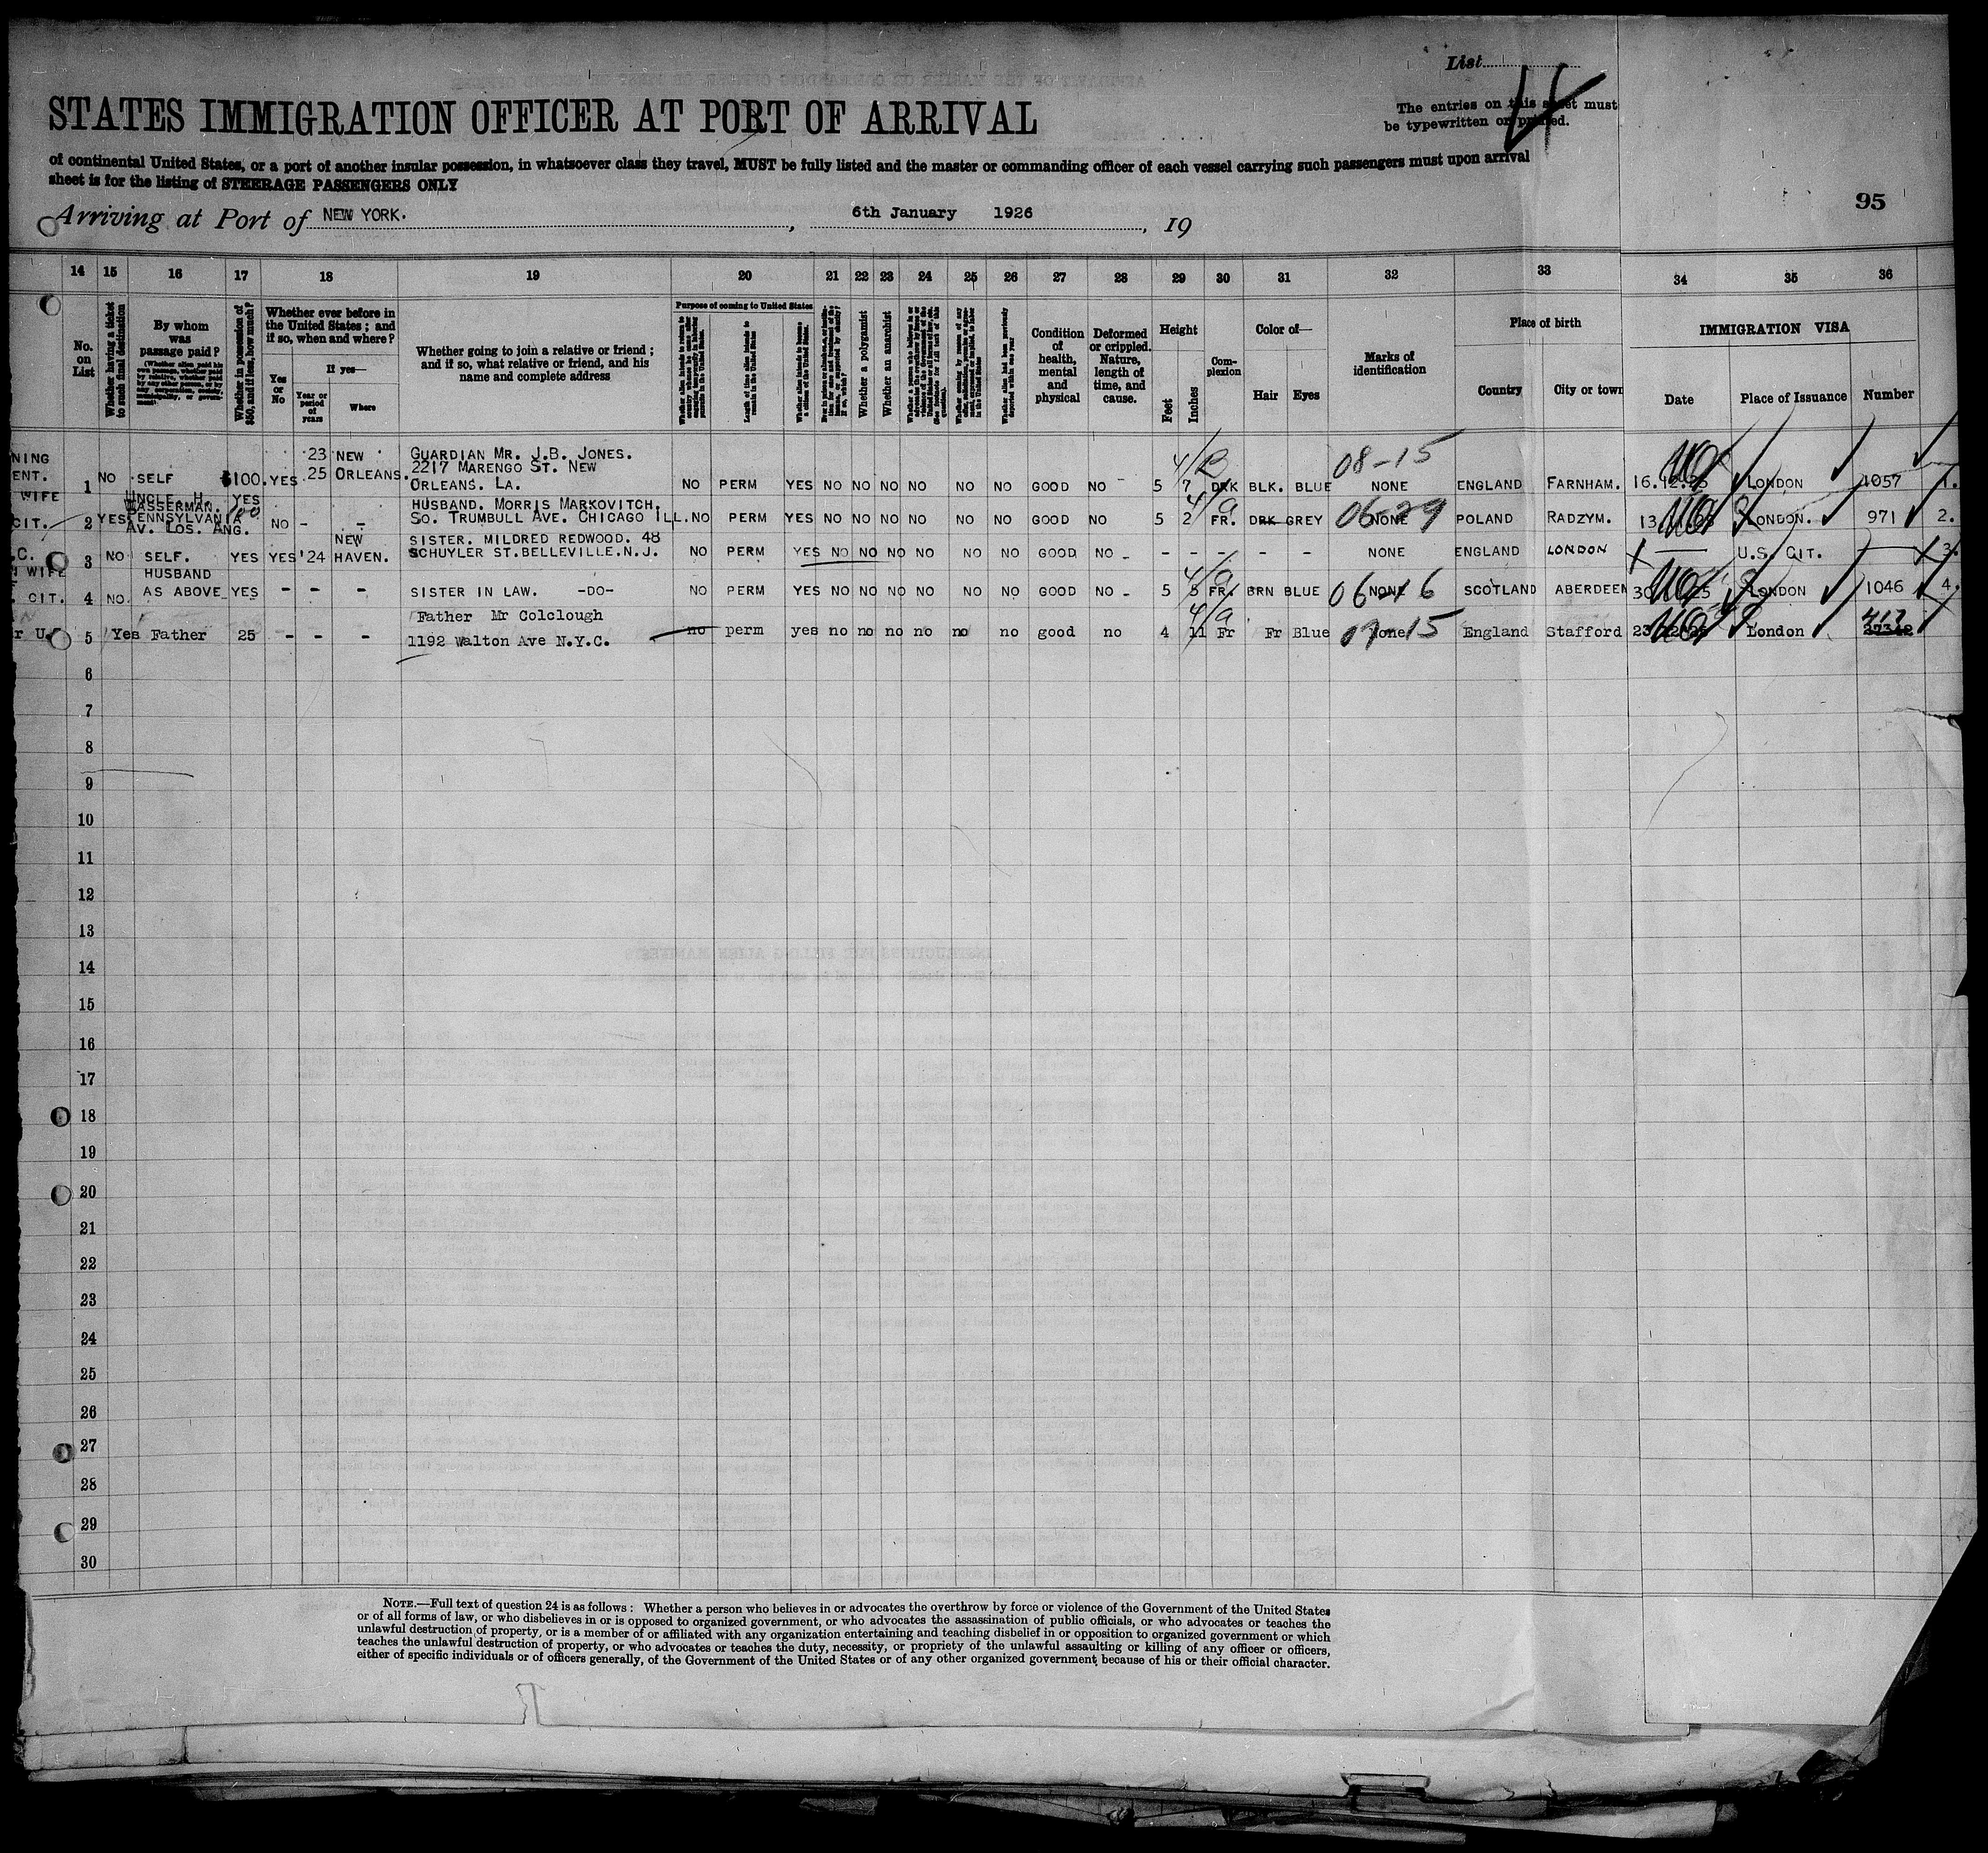 List
STATES IMMIGRATION OFFICER AT PORT OF ARRIVAL
The entries on this sheet must
be typewritten or printed.
4
of continental United States, or a port of another insular possession, in whatsoever class they travel, MUST be fully listed and the master or commanding officer of each vessel carrying such passengers must upon arrival
sheet is for the listing of STEERAGE PASSENGERS ONLY
95
Arriving at Port of NEW YORK. , 6th January 1926 , 19
14 15 16 17 18 19 20 21 22 23 24 25 26 27 28 29 30 31 32 33 34 35 36
No. on List
Whether having a ticket to such final destination
By whom was passage paid?
Whether in possession of $50, and if less, how much?
Whether ever before in the United States; and if so, when and where?
Yes or No
If yes—
Year or period of years
Where
Whether going to join a relative or friend; and if so, what relative or friend, and his name and complete address
Purpose of coming to United States
Length of time alien intends to remain in the United States
Whether alien intends to become a citizen of the United States
Whether a polygamist
Whether an anarchist
Whether alien had been previously deported within one year
Condition of health, mental and physical
Deformed or crippled. Nature, length of time, and cause.
Height
Feet
Inches
Complexion
Color of—
Hair
Eyes
Marks of identification
Place of birth
Country
City or town
IMMIGRATION VISA
Date
Place of Issuance
Number
NING 23 NEW GUARDIAN MR. J.B. JONES. 08-15
ENT. 25 ORLEANS. 2217 MARENGO ST. NEW
1 NO SELF $100. YES ORLEANS. LA. NO PERM YES NO NO NO NO NO NO GOOD NO 5 7 DRK BLK. BLUE NONE ENGLAND FARNHAM. 16.12. LONDON 1057 1.
WIFE UNCLE H. YES HUSBAND. MORRIS MARKOVITCH.
WASSERMAN. 100
CIT. 2 YES PENNSYLVANIA NO - - SO. TRUMBULL AVE. CHICAGO ILL. NO PERM YES NO NO NO NO NO NO GOOD NO 5 2 FR. DRK GREY NONE 06-29 POLAND RADZYM. 13 LONDON. 971 2.
AV. LOS. ANG.
NEW SISTER. MILDRED REDWOOD. 48
.C. 3 NO SELF. YES YES '24 HAVEN. SCHUYLER ST. BELLEVILLE. N.J. NO PERM YES NO NO NO NO NO NO GOOD NO - - - - - - NONE ENGLAND LONDON U.S. CIT. 3.
WIFE HUSBAND
CIT. 4 NO. AS ABOVE YES - - - SISTER IN LAW. -DO- NO PERM YES NO NO NO NO NO NO GOOD NO - 5 5 FR. BRN BLUE NONE 06-16 SCOTLAND ABERDEEN 30 25 LONDON 1046 4.
Father Mr Colclough 417
r U. 5 Yes Father 25 - - - 1192 Walton Ave N.Y.C. no perm yes no no no no no no good no 4 11 Fr Fr Blue None 07-15 England Stafford 23 London 27342
6
7
8
9
10
11
12
13
14
15
16
17
18
19
20
21
22
23
24
25
26
27
28
29
30
NOTE.—Full text of question 24 is as follows: Whether a person who believes in or advocates the overthrow by force or violence of the Government of the United States
or of all forms of law, or who disbelieves in or is opposed to organized government, or who advocates the assassination of public officials, or who advocates or teaches the
unlawful destruction of property, or is a member of or affiliated with any organization entertaining and teaching disbelief in or opposition to organized government or which
teaches the unlawful destruction of property, or who advocates or teaches the duty, necessity, or propriety of the unlawful assaulting or killing of any officer or officers,
either of specific individuals or of officers generally, of the Government of the United States or of any other organized government because of his or their official character.